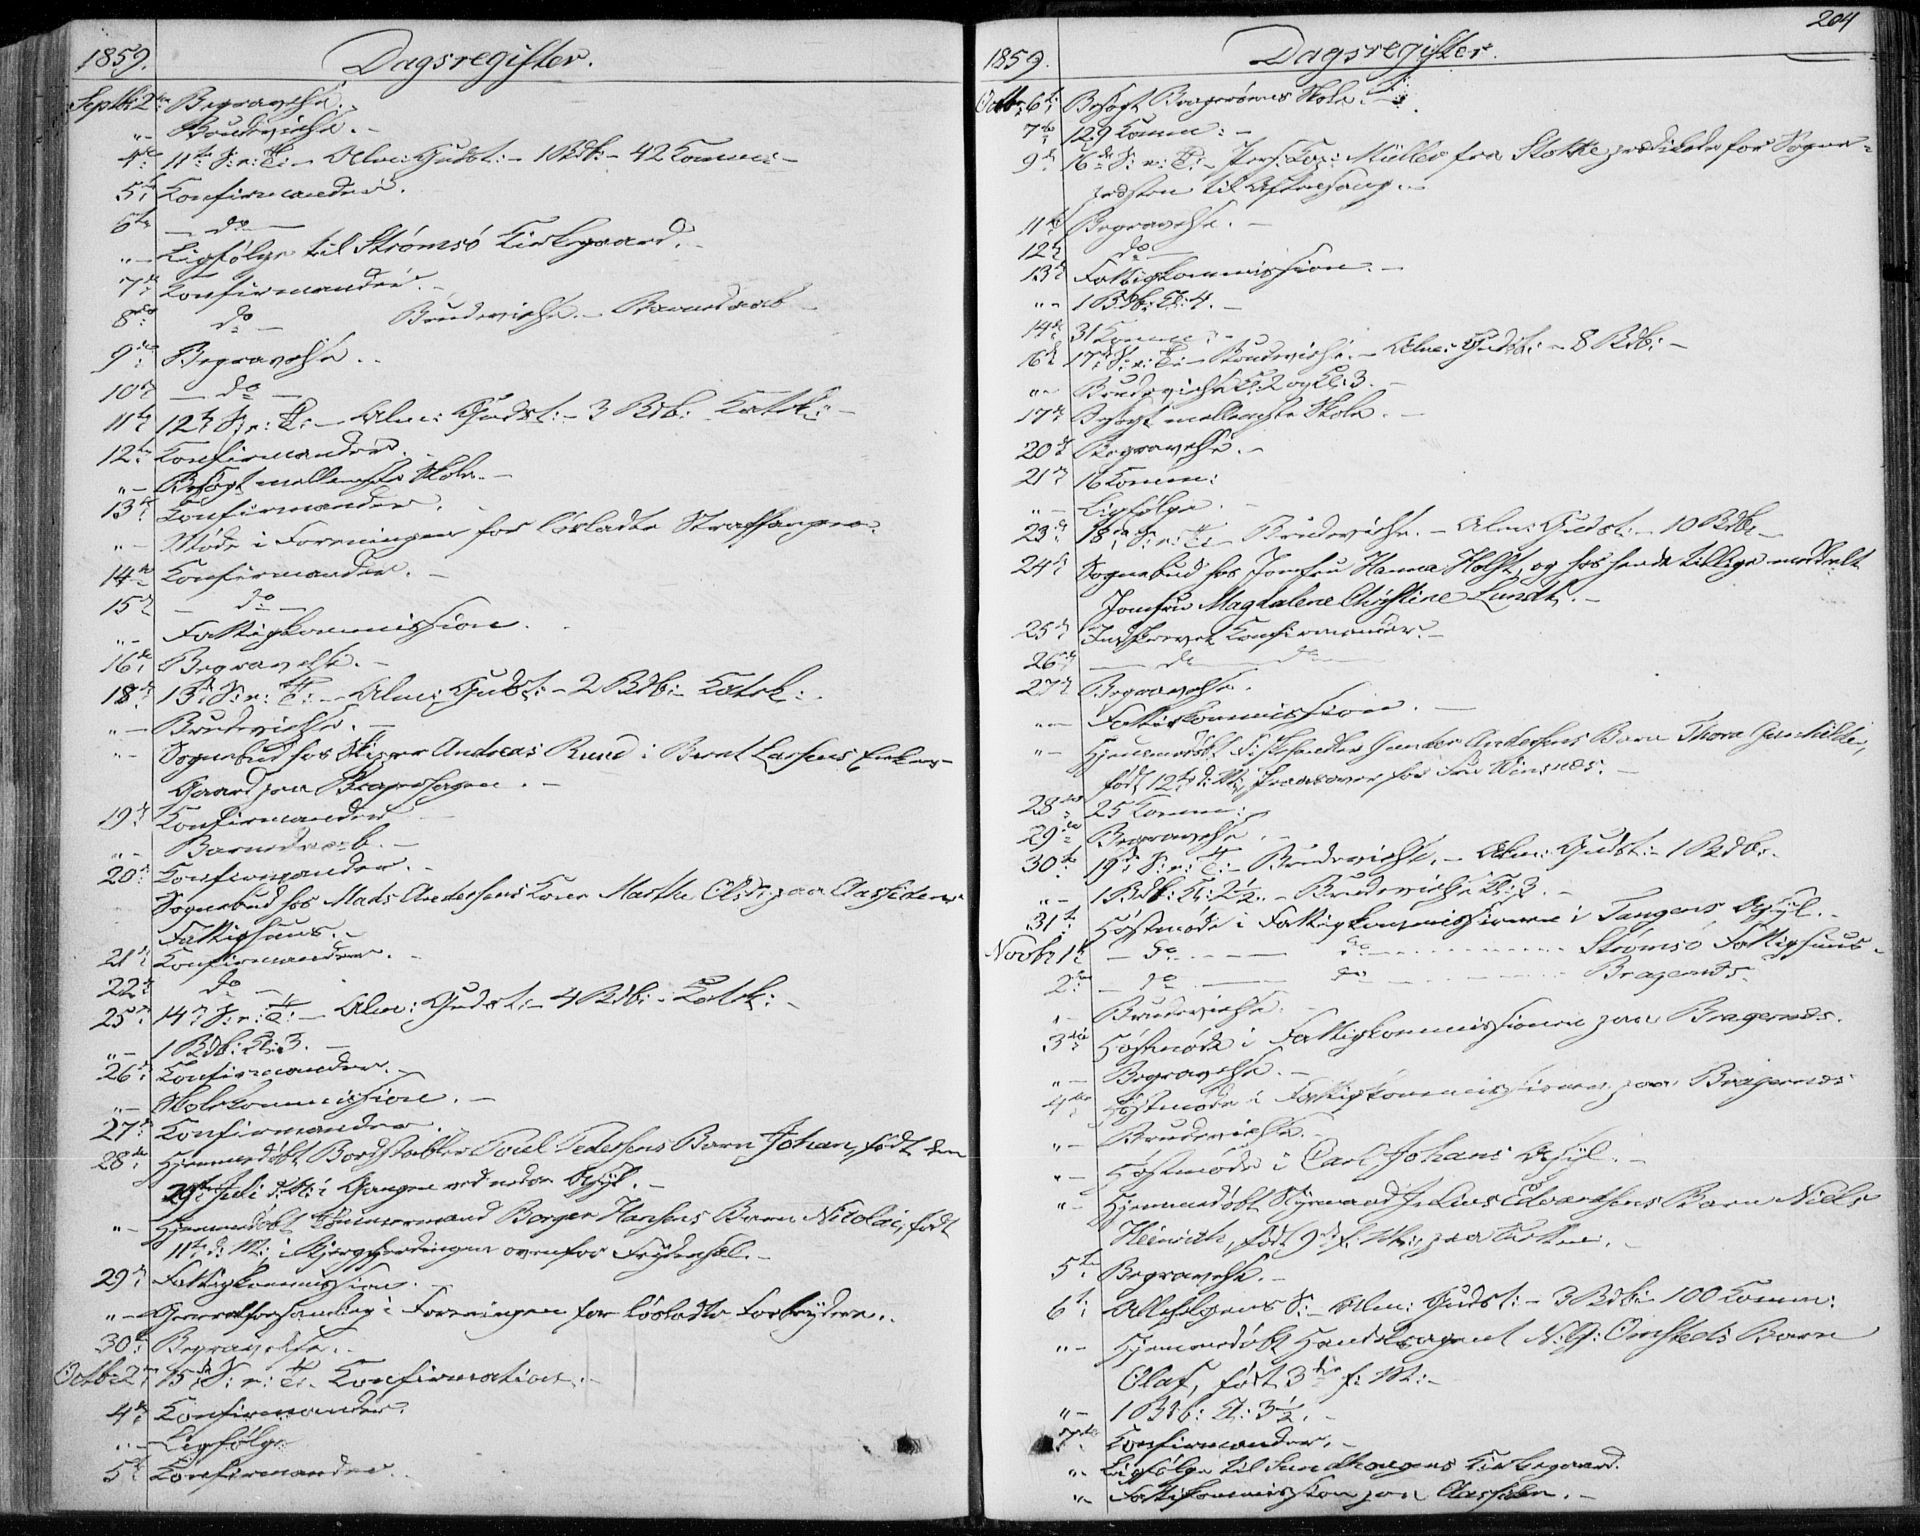 1859. Dagsregister.
Septbr 2den Begravelse.
"- Brudevielse.-
4de 11te S: e: T:- Alm: Gudst:- 1 Bdb:- 42 Komm:-
5te Konfirmander.
6te - do -
"- Ligfølge til Strømsø Kirkegaard.-
7de Konfirmander.-
8de do - Brudevielse.- Barnedaab
9de Begravelse..
10de - do -
11te 12te S: e: T:- Alm: Gudst:- 3 Bdb: Katek:-
12te Konfirmander.
"- Besøgt mellemste Skole.-
13de Konfirmander.
"- Møde i Foreningen for løsladte Straffanger.
14de Konfirmander.-
15de - do -
"- Fattigkommission.
16de Begravelse.-
18de 13de S: e: T:- Alm: Gudst:- 2 Bdb:- Katek:
"- Brudevielse.-
"- Sognebud hos Skipper Andreas Ruud i Bernt Larsens Enkes
Gaard paa Bragerhagen.-
19de Konfirmander
"- Barnedaab.-
20de Konfirmander.-
Sognebud hos Mads Andersens Kone Marthe Olsdr paa Aassidens
Fattighuus.-
21de Konfirmander.-
22de do -
25de 14de S: e: T:- Alm: Gudst:- 4 Bdb:- Katek:-
"- 1 Bdb: Kl: 3.-
26de Konfirmander.-
"- Skolekommission.-
27de Konfirmander.
28de Hjemmedøbt Bordstabler Poul Pedersens Barn Johan, født den
29de Juli d: A: i Gangen ved nedre Asyl.-
"- Hjemmedøbt Tømmermand Borger Hansens Barn Nicolai, født
11te d: M: i Bjergfjerdingen ovenfor Frydenhel.-
29de Fattigkommission.-
"- Generalforsamling i Foreningen for løsladte Forbrydere..
30te Begravelse.
Octbr 2den 15de S: e: T:- Konfirmation.
4de Konfirmander.
"- Ligfølge
5te Konfirmander.
204
1859. Dagsregister.
Octbr 6te Besøgt Bragernæs Skole.-
7de 129 Komm:-
9de 16de S: e: T:- Pers: Kap: Müller fra Stokke prædikede for Sogne-
præsten til Aftensang.-
11te Begravelse.-
12te do -
13de Fattigkommission.-
"- 1 Bdb: Kl: 4.-
14de 31 Komm:-
16de 17de S: e: T:- Brudevielse.- Alm: Gudst:- 8 Bdb:-
"- Brudevielse Kl: 2 og Kl: 3.-
17de Besøgt mellemste Skole.-
20de Begravelse.-
21de 16 Komm:
"- Ligfølge.
23de 18de S: e: T:- Brudevielse.- Alm: Gudst:- 10 Bdb:-
24de Sognebud hos Jomfru Hanna Holst, og hos hende tillige meddelt
Jomfru Magdalene Christine Lundt.-
25de Indskrevet Konfirmander.-
26de - do - do -
27de Begravelse.
"- Fattigkommission.-
"- Hjemmedøbt Fiskehandler Gunder Andersens Barn Thora Gunhilde,
født 12te d: M:
28de 25 Komm:
29de Begravelse.
30te 19de S: e: T:- Brudevielse.- Alm: Gudst:- 1 Bdb:-
"- 1 Bdb: Kl: 2½.- Brudevielse Kl: 3.-
31te Høstmøde i Fattigkommissionen i Tangens Asyl.-
Novbr 1te - do - do - Strømsø Fattighuus.
2den - do - do - Bragernæs.
"- Brudevielse.
3die Høstmøde i Fattigkommissionen paa Bragernæs.
"- Begravelse.-
4de Høstmøde i Fattigkommissionen paa Bragernæs
"- Brudevielse.-
"- Høstmøde i Carl Johans Asyl.-
"- Hjemmedøbt Styrmand Julius Edvardsens Barn Niels
Heinrich, født 9de f: M:
5te Begravelse.-
6te Allehelgens S:- Alm: Gudst:- 3 Bdb:- 100 Komm:
"- Hjemmedøbt Handelsagent N: G: Omsteds Barn
Olaf, født 3die f: M:-
"- 1 Bdb: Kl: 3½.-
7de Konfirmander.-
"- Ligfølge til Sundhaugens Kirkegaard.
"- Fattigkommission paa Aassiden.-